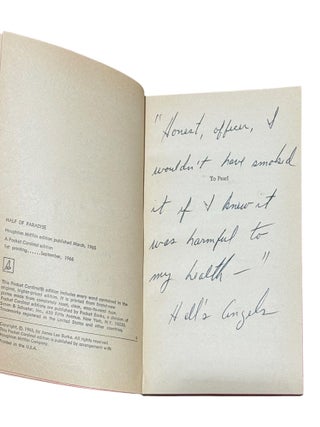 HALF OF PARADISE
Houghton Mifflin edition published March, 1965
A Pocket Cardinal edition
1st printing......September, 1966
This Pocket Cardinal® edition includes every word contained in the
original, higher-priced edition. It is printed from brand-new
plates made from completely reset, clear, easy-to-read type.
Pocket Cardinal editions are published by Pocket Books, a division of
Simon & Schuster, Inc., 630 Fifth Avenue, New York, N.Y. 10020.
Trademarks registered in the United States and other countries.
Copyright, ©, 1965, by James Lee Burke. All rights reserved.
This Pocket Cardinal edition is published by arrangement with
Houghton Mifflin Company.
Printed in the U.S.A.
"Honest, officer, I
wouldn't have smoked
To Pearl
it if I knew it
was harmful to
my health — "
Hell's Angels